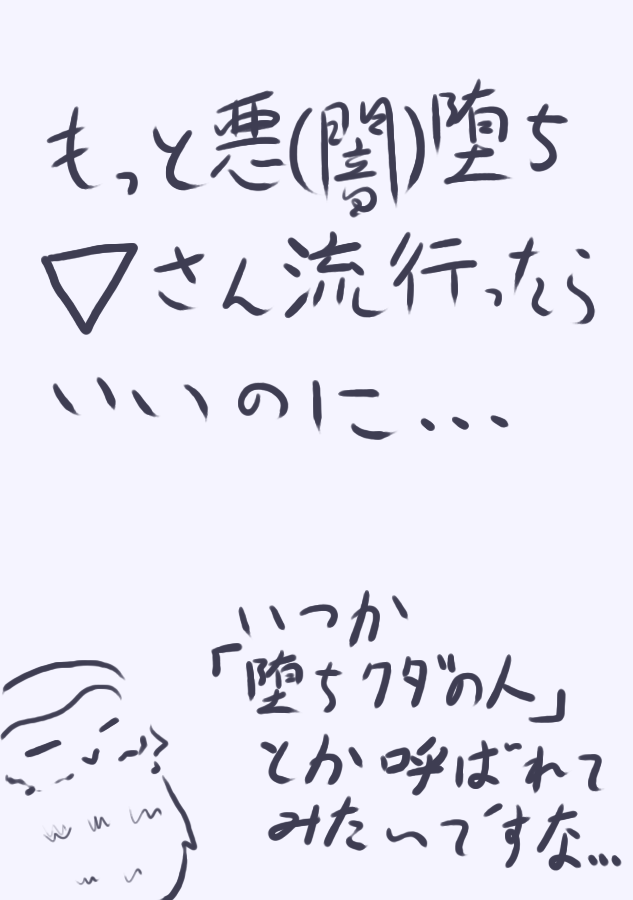 もっと悪(闇)堕ち
▽さん流行ったら
いいのに...
いつか
「堕ちクダの人」
とか呼ばれて
みたいですな...